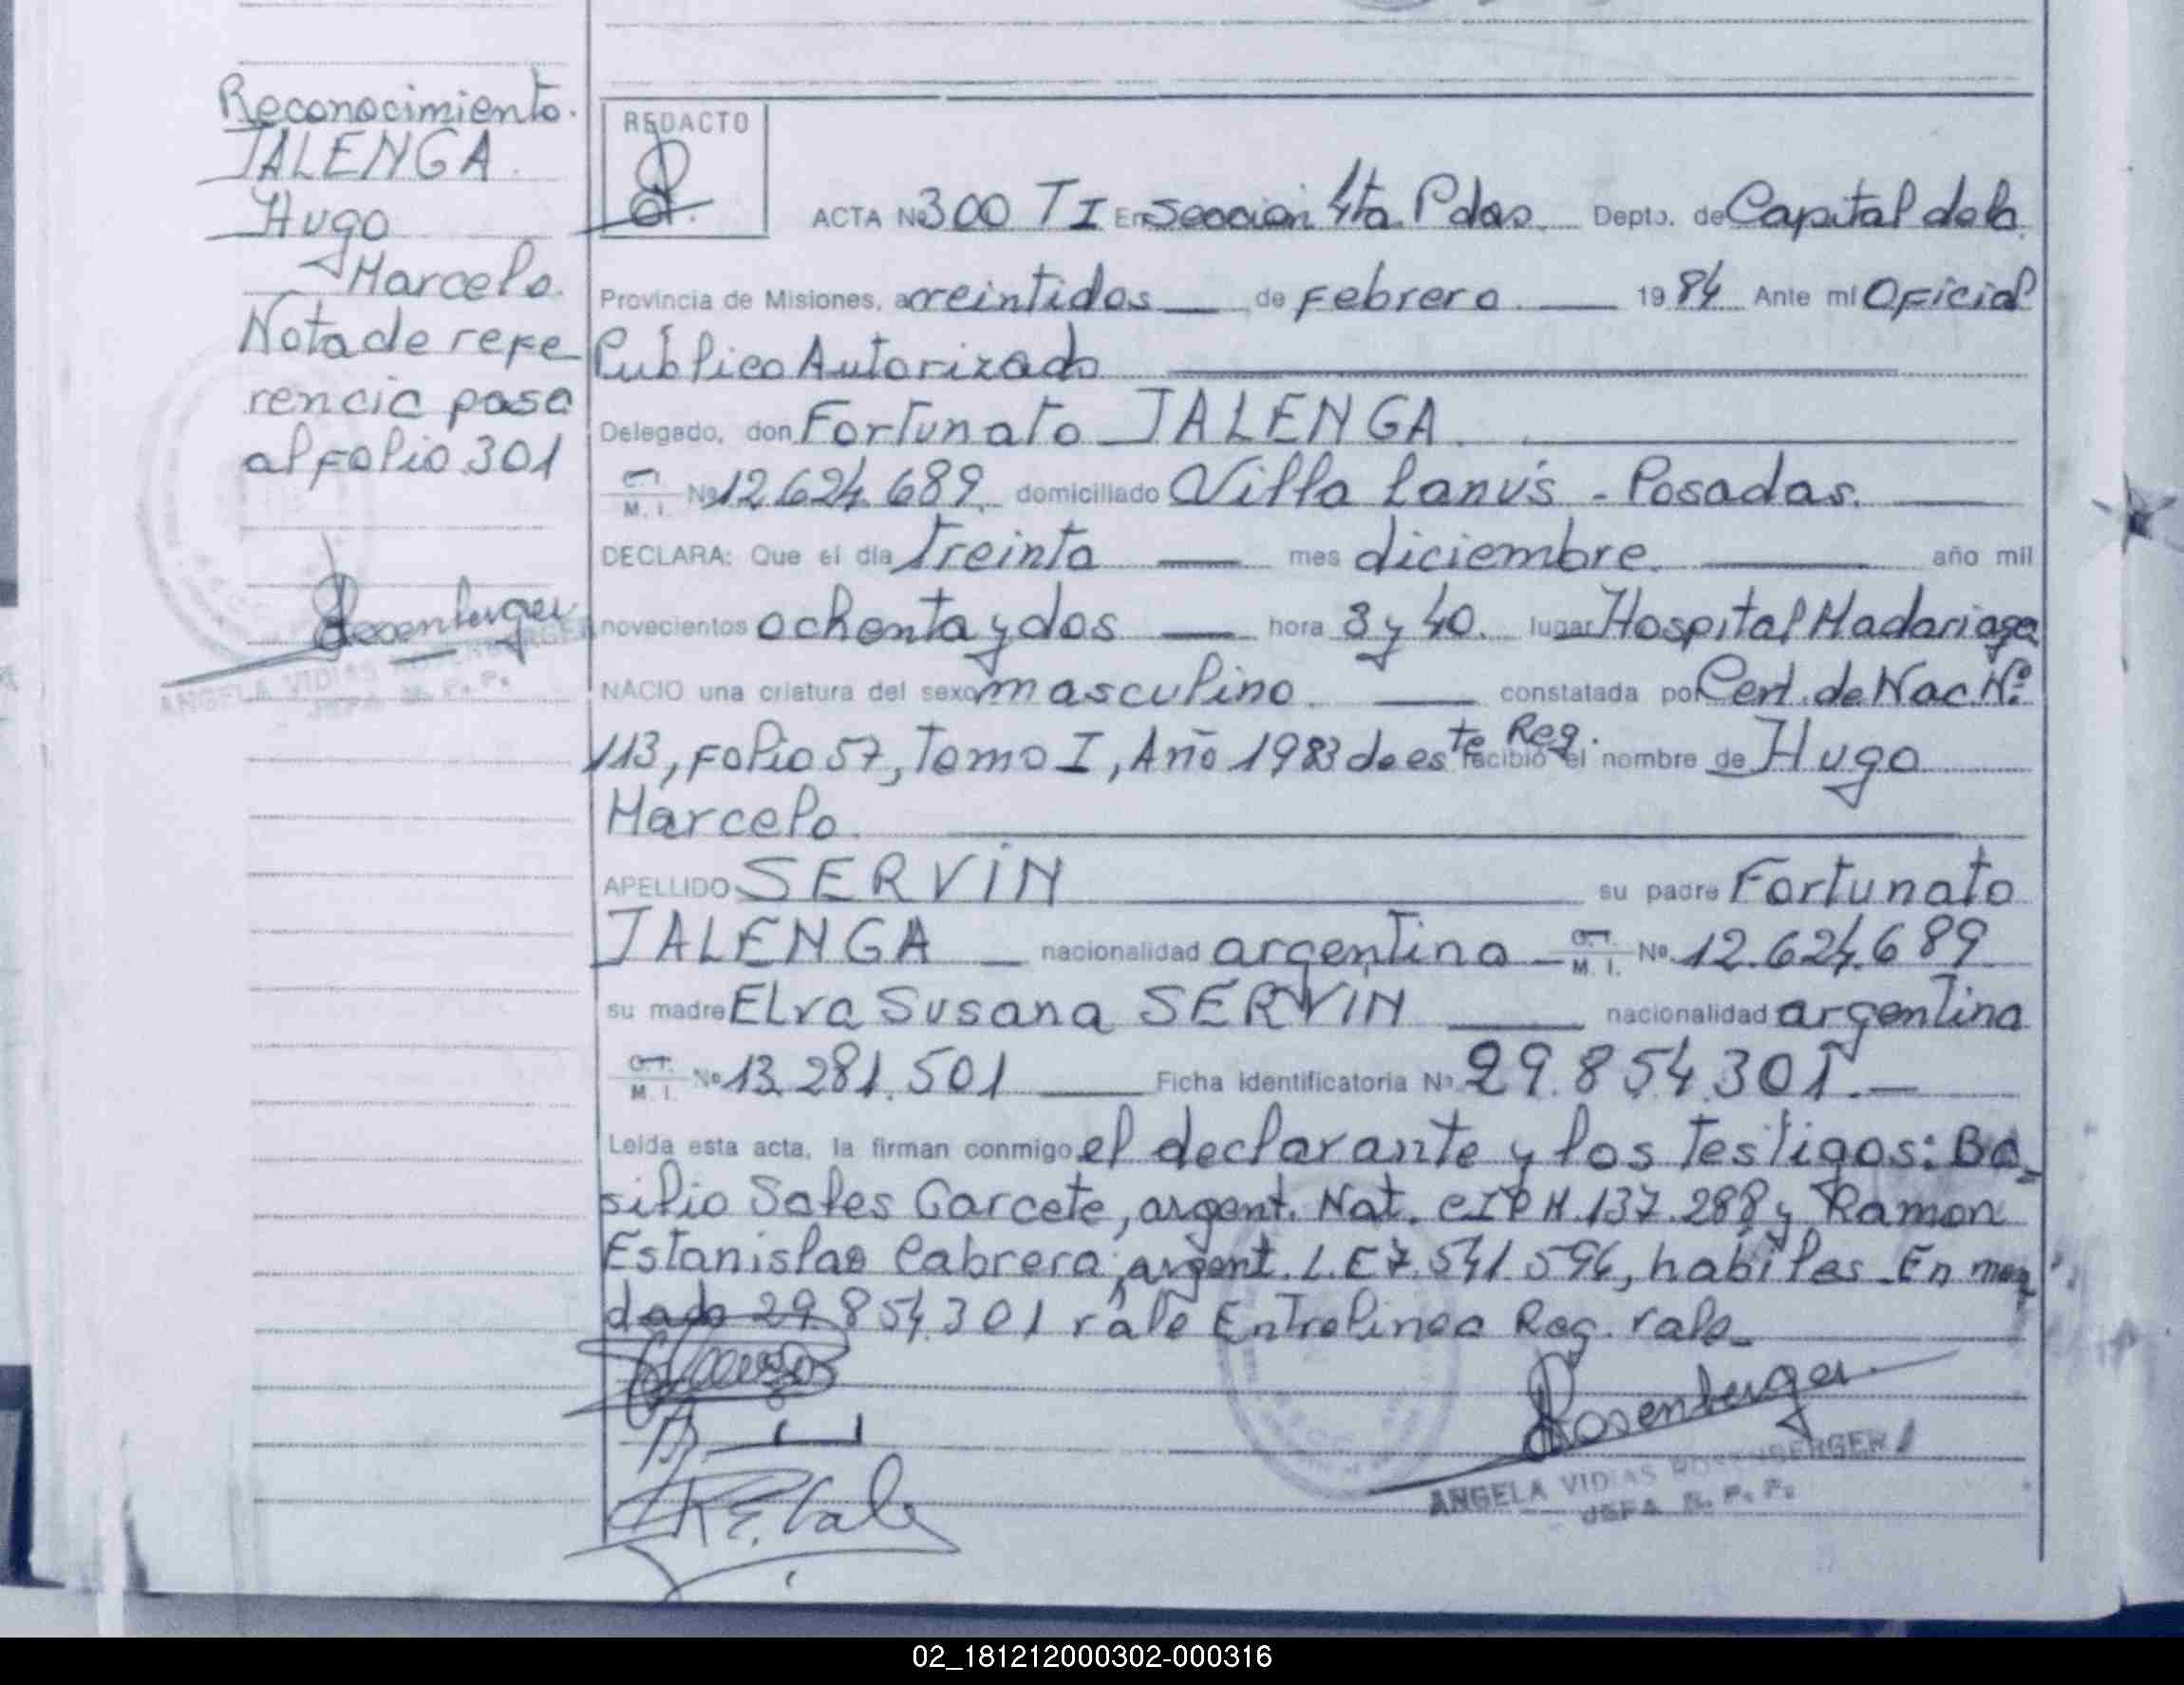 Reconocimiento.
JALENGA.
Hugo
Marcelo.
Nota de refe
rencia pasa
al folio 301
Rosenberger
ANGELA VIDIAS ROSENBERGER
JEFA R. P. P.
REDACTO
ACTA Nº 300 T I En Sección 4ta. Pdas. Depto. de Capital de la
Provincia de Misiones, a veintidos de Febrero. 1984 Ante mi Oficial
Público Autorizado
Delegado, don Fortunato JALENGA.
M. I. Nº 12.624.689. domiciliado Villa Lanús - Posadas.
DECLARA: Que el día treinta mes diciembre. año mil
novecientos ochenta y dos hora 3 y 40. lugar Hospital Madariaga
NACIO una criatura del sexo masculino. constatada por Cert. de Nac. Nº
113, Folio 57, Tomo I, Año 1983 de este Reg. recibió el nombre de Hugo
Marcelo.
APELLIDO SERVIN su padre Fortunato
JALENGA nacionalidad argentina M. I. Nº 12.624.689
su madre Elva Susana SERVIN nacionalidad argentina
M. I. Nº 13.281.501 Ficha identificatoria Nº 29.854.301.
Leída esta acta, la firman conmigo el declarante y los testigos: Ba-
silio Sales Garcete, argent. Nat. 137.288 y Ramon
Estanislao Cabrera, argent. L.E 7.541.596, habiles. Enmen
dado 29.854.301 vale Entrelinea Reg. vale
Rosenberger
ANGELA VIDIAS ROSENBERGER
JEFA R. P. P.
02_181212000302-000316